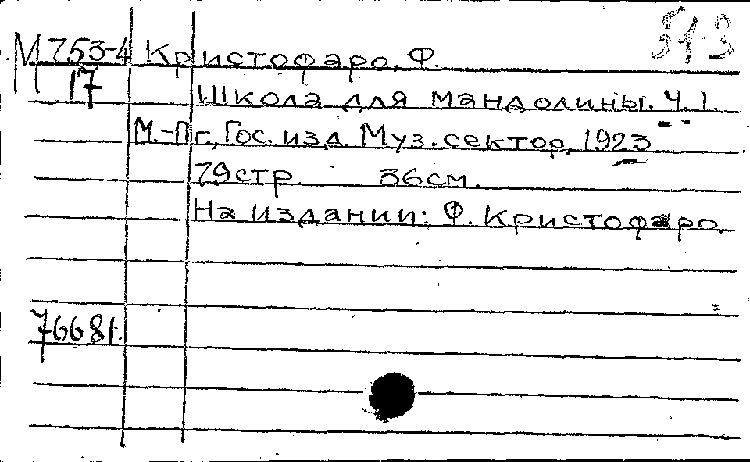 М 753-4 Кристофаро, Ф. 513
17
Школа для мандолины. Ч. 1.
М.-Пг., Гос. изд. Муз. сектор, 1923
79 стр. 36 см.
На издании: Ф. Кристофаро.
76681.